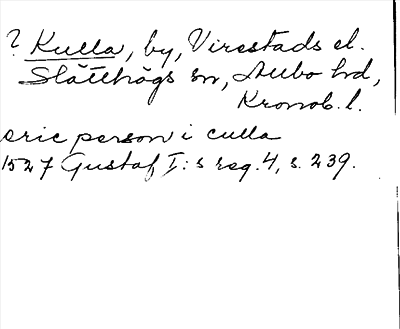 ? Kulla, by, Virestads el.
Slätthögs sn, Allbo hd,
Kronob. l.
eric person i culla
1527 Gustaf I:s reg. 4, s. 239.